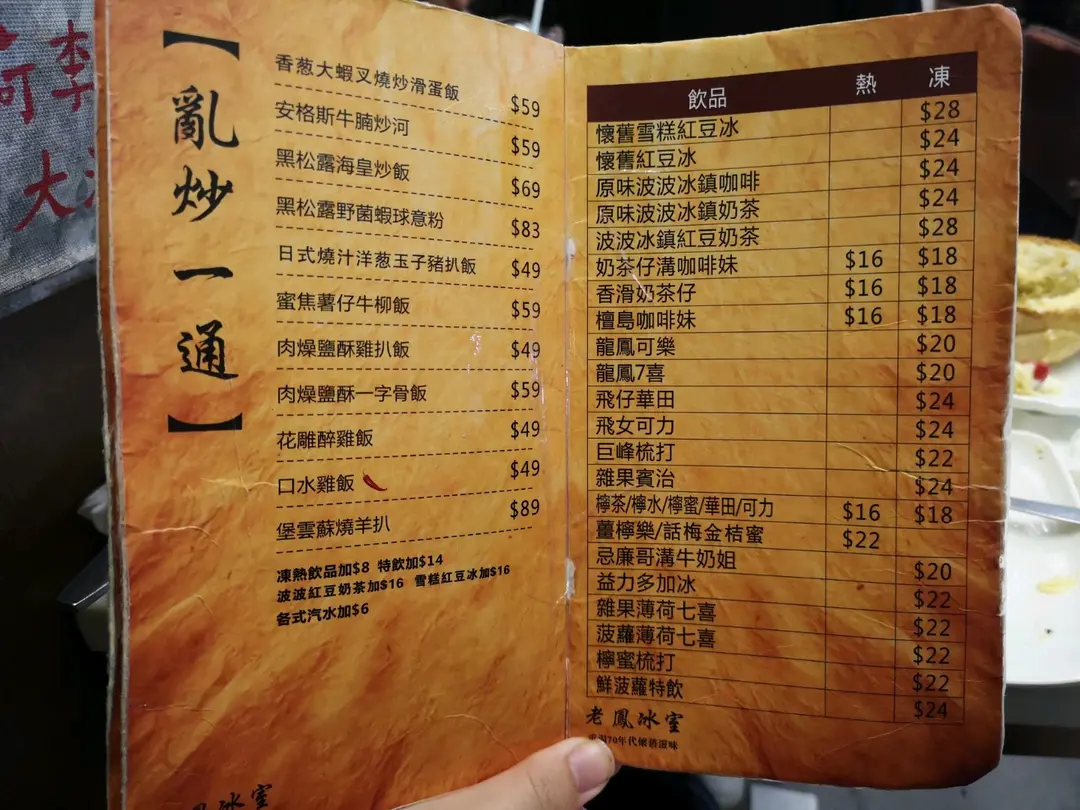 【亂炒一通】
香葱大蝦叉燒炒滑蛋飯 $59
安格斯牛腩炒河 $59
黑松露海皇炒飯 $69
黑松露野菌蝦球意粉 $83
日式燒汁洋葱玉子豬扒飯 $49
蜜焦薯仔牛柳飯 $59
肉燥鹽酥雞扒飯 $49
肉燥鹽酥一字骨飯 $59
花雕醉雞飯 $49
口水雞飯 $49
堡雲蘇燒羊扒 $89
凍熱飲品加$8 特飲加$14
波波紅豆奶茶加$16 雪糕紅豆冰加$16
各式汽水加$6
鳳冰室
飲品 熱 凍
懷舊雪糕紅豆冰 $28
懷舊紅豆冰 $24
原味波波冰鎮咖啡 $24
原味波波冰鎮奶茶 $24
波波冰鎮紅豆奶茶 $28
奶茶仔溝咖啡妹 $16 $18
香滑奶茶仔 $16 $18
檀島咖啡妹 $16 $18
龍鳳可樂 $20
龍鳳7喜 $20
飛仔華田 $24
飛女可力 $24
巨峰梳打 $22
雜果賓治 $24
檸茶/檸水/檸蜜/華田/可力 $16 $18
薑檸樂/話梅金桔蜜 $22
忌廉哥溝牛奶姐 $20
益力多加冰 $22
雜果薄荷七喜 $22
菠蘿薄荷七喜 $22
檸蜜梳打 $22
鮮菠蘿特飲 $24
老鳳冰室
70年代懷舊滋味
李
大